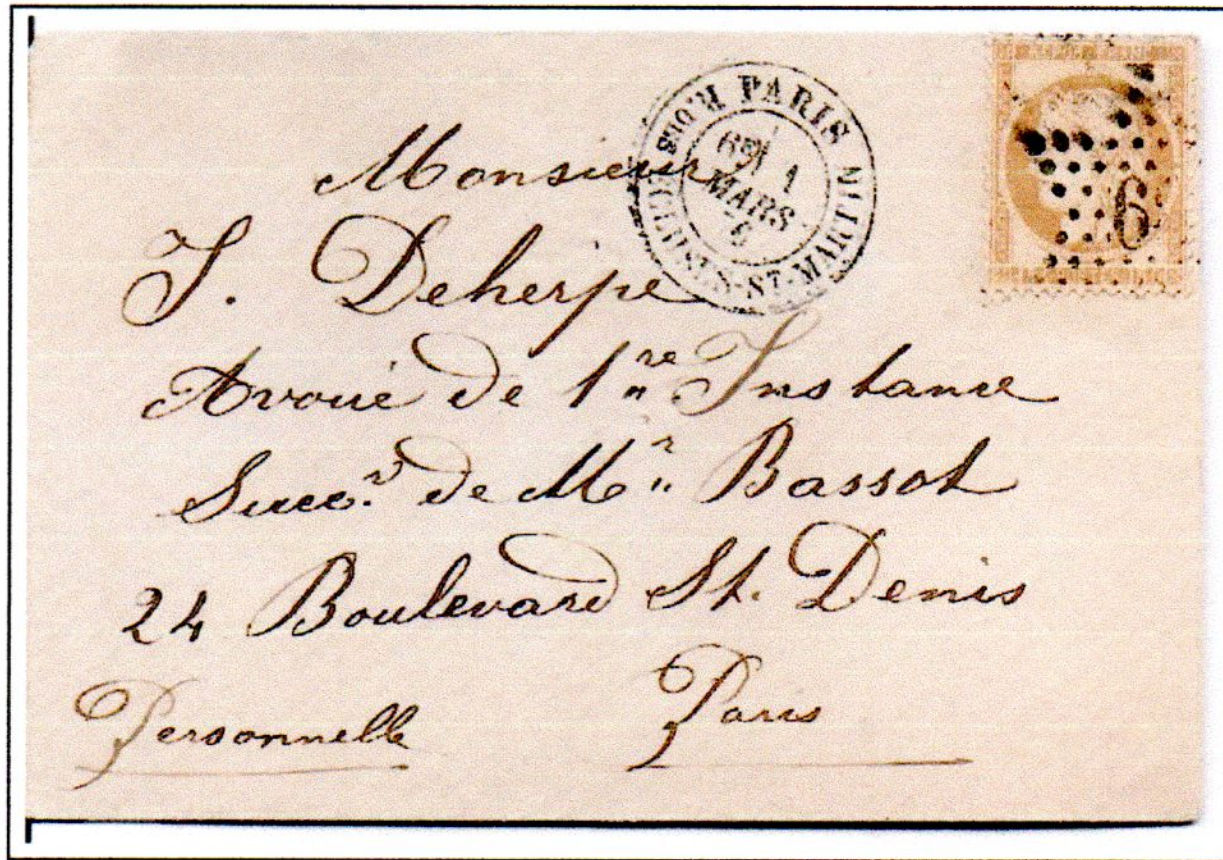 PARIS
R. DES ECLUSES-ST-MARTIN
6E
1
MARS
6
Monsieur
J. Deherpe
Avoué de 1re Instance
Succr de Mr Bassot
24 Boulevard St. Denis
Personnelle Paris